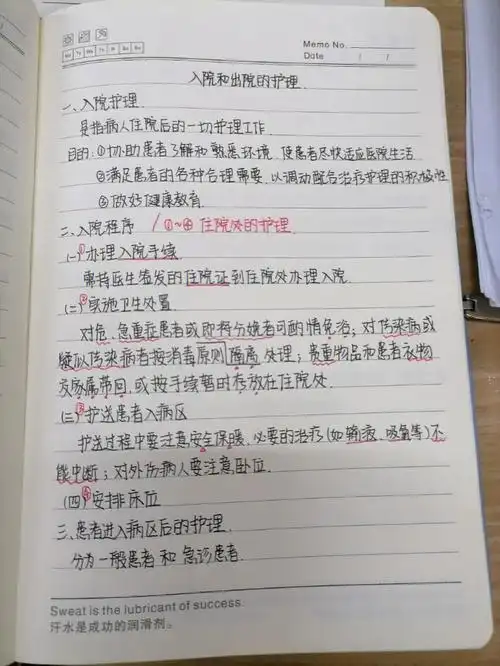 Mo Tu We Th Fr Sa Su
Memo No.
Date / /
入院和出院的护理.
一、入院护理.
是指病人住院后的一切护理工作
目的:①协助患者了解和熟悉环境,使患者尽快适应医院生活
②满足患者的各种合理需要,以调动配合治疗护理的积极性
③做好健康教育
二、入院程序 / ①~④住院处的护理.
(一)①办理入院手续.
需持医生签发的住院证到住院处办理入院.
(二)②实施卫生处置.
对危、急重症患者或即将分娩者可酌情免浴;对传染病或
疑似传染病者按消毒原则隔离处理;贵重物品和患者衣物
交家属带回,或按手续暂时存放在住院处.
(三)③护送患者入病区
护送过程中要注意安全保暖,必要的治疗(如输液、吸氧等)不
能中断;对外伤病人要注意卧位.
(四)④安排床位
三、患者进入病区后的护理.
分为一般患者和急诊患者.
Sweat is the lubricant of success.
汗水是成功的润滑剂。